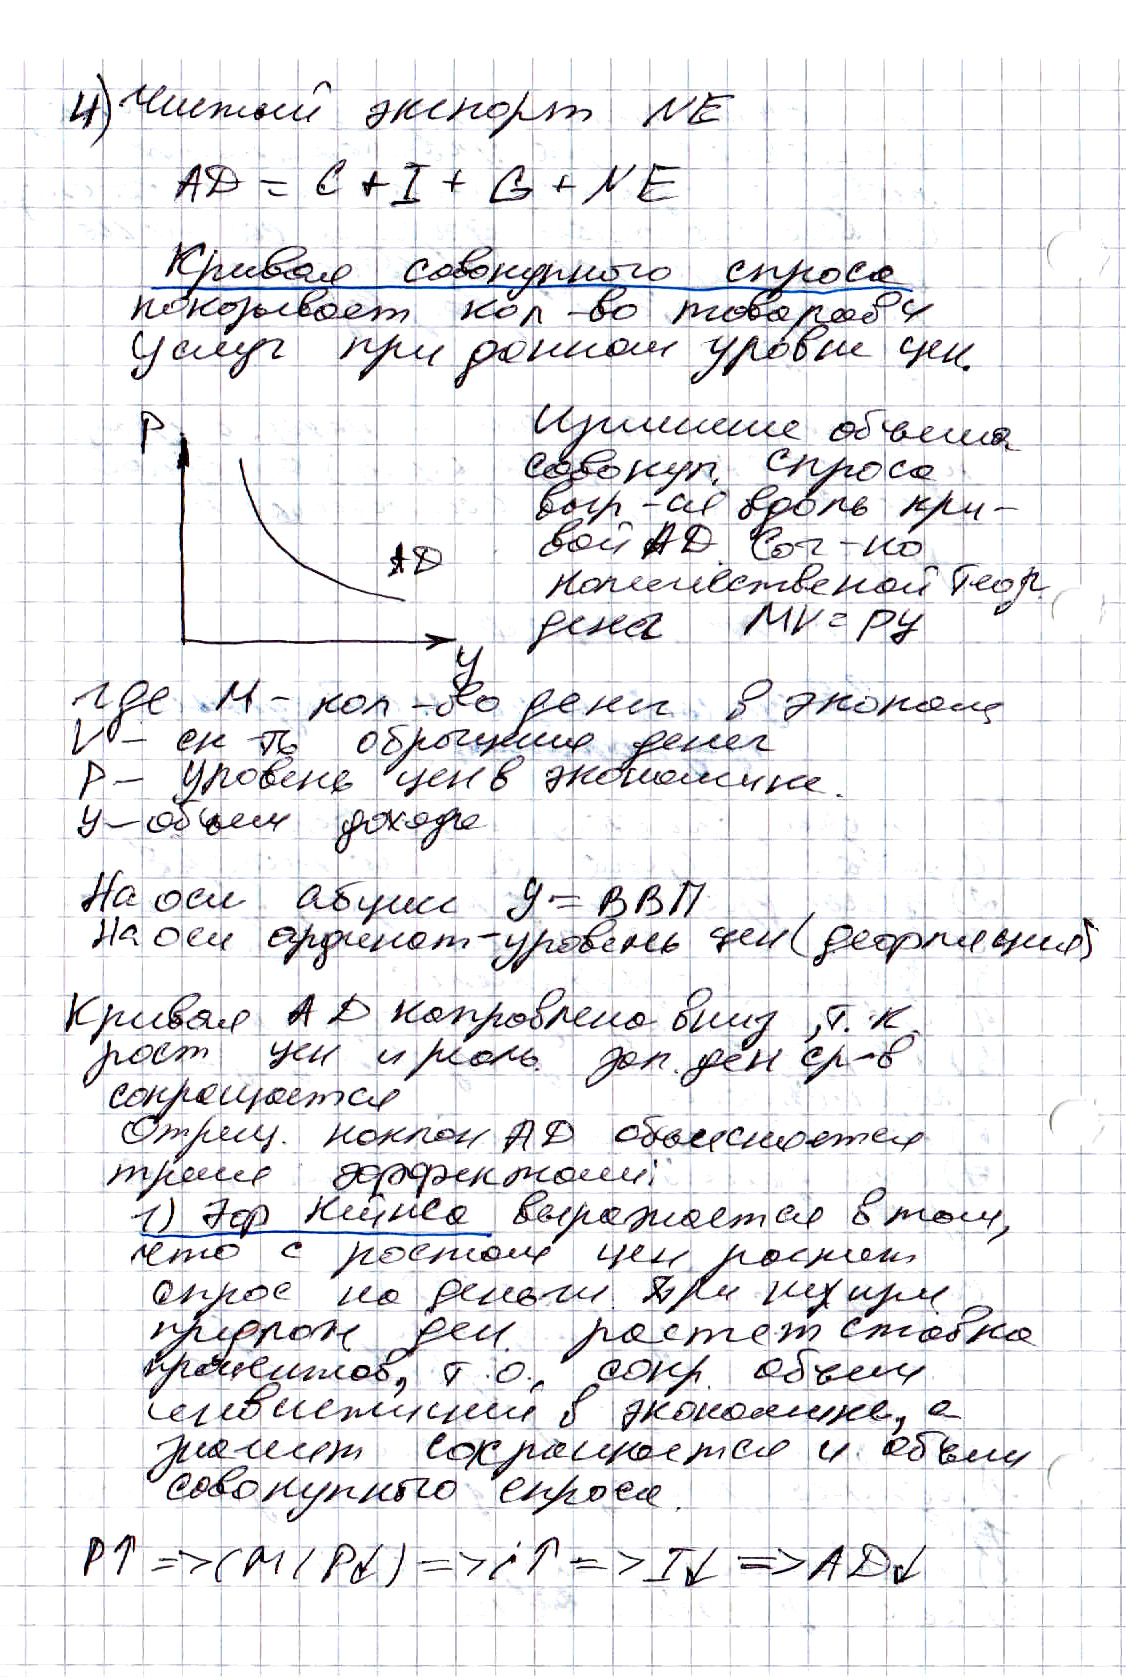 4) Чистый экспорт NE
AD = C + I + G + NE
Кривая совокупного спроса
показывает кол-во товаров и
услуг при данном уровне цен.
P
AD
y
Изменение объема
совокуп. спроса
выр-ся вдоль кри-
вой AD. Сог-но
количественной теор.
денег MV = PY
где M - кол-во денег в эконом
V - ск-ть обращения денег
P - уровень цен в экономике.
y - объем дохода
На оси абцисс y = ВВП
На оси ординат - уровень цен (дефляция)
Кривая AD направлена вниз, т.к.
рост цен и реаль. зап. ден ср-в
сокращается
Отриц. наклон AD объясняется
тремя эффектами:
1) Эф Кейнса выражается в том,
что с ростом цен растет
спрос на деньги. При
предлож ден. растет ставка
процентов, т.о., сокр. объем
инвестиций в экономике, а
значит сокращается и объем
совокупного спроса.
P↑ => (M/P↓) => i↑ => I↓ => AD↓